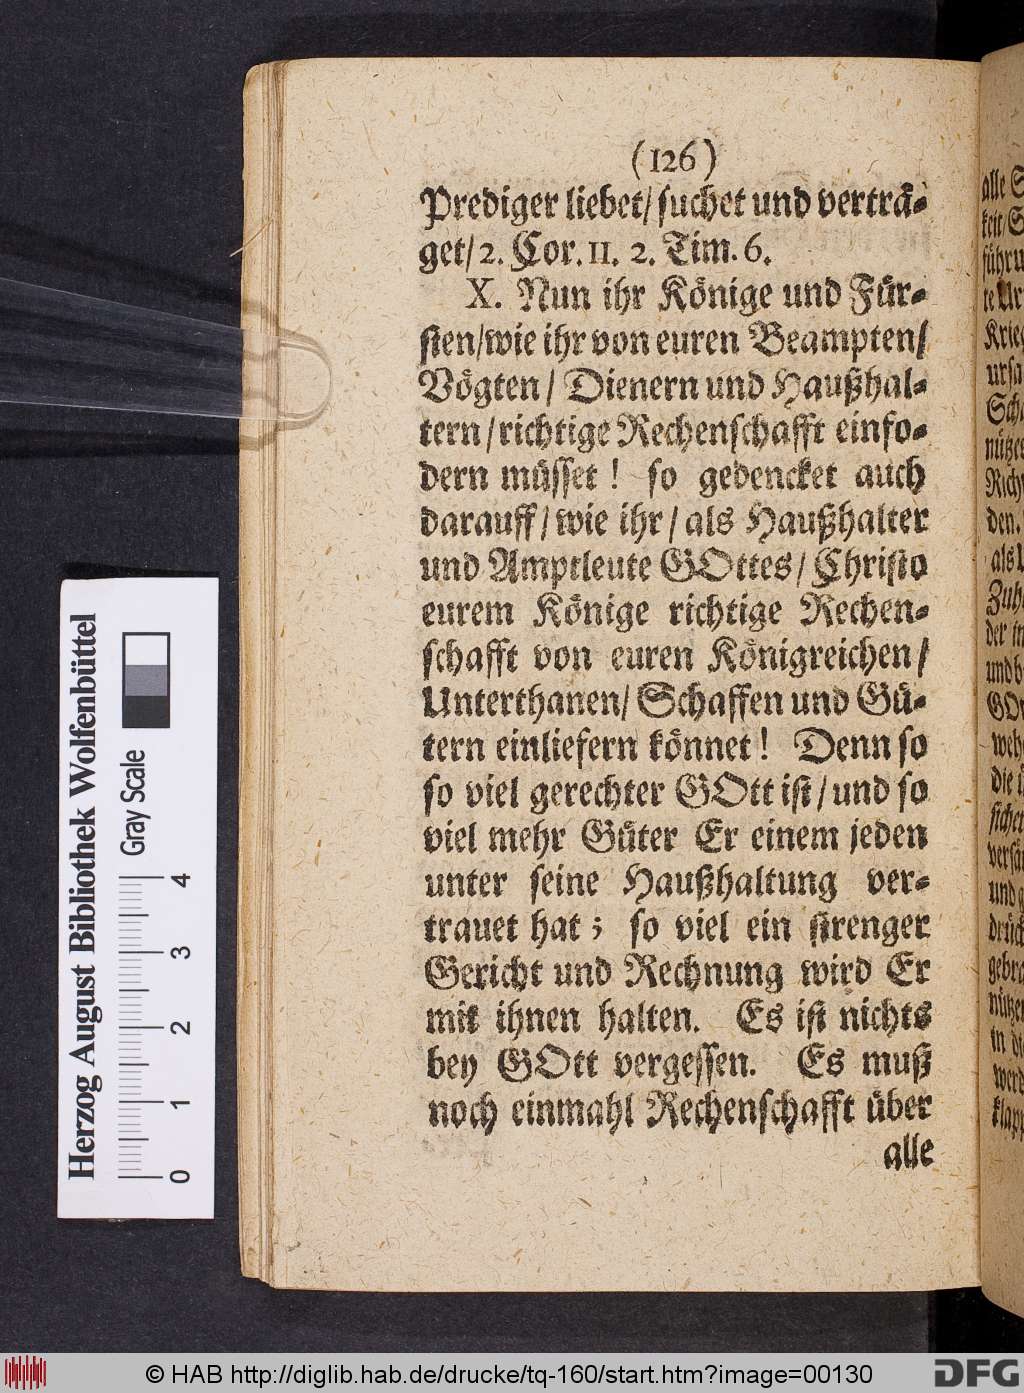 (126)
Prediger liebet/ suchet und verträ-
get/ 2. Cor. 11. 2. Tim. 6.
X. Nun ihr Könige und Für-
sten/wie ihr von euren Beampten/
Vögten/ Dienern und Haußhal-
tern/richtige Rechenschafft einfo-
dern müsset! so gedencket auch
darauff/ wie ihr/ als Haußhalter
und Amptleute GOttes/ Christo
eurem Könige richtige Rechen-
schafft von euren Königreichen/
Unterthanen/ Schaffen und Gü-
tern einliefern könnet! Denn so
so viel gerechter GOtt ist/ und so
viel mehr Güter Er einem jeden
unter seine Haußhaltung ver-
trauet hat; so viel ein strenger
Gericht und Rechnung wird Er
mit ihnen halten. Es ist nichts
bey GOtt vergessen. Es muß
noch einmahl Rechenschafft über
alle
alle
Herzog August Bibliothek Wolfenbüttel
Gray Scale
0 1 2 3 4
© HAB http://diglib.hab.de/drucke/tq-160/start.htm?image=00130
DFG